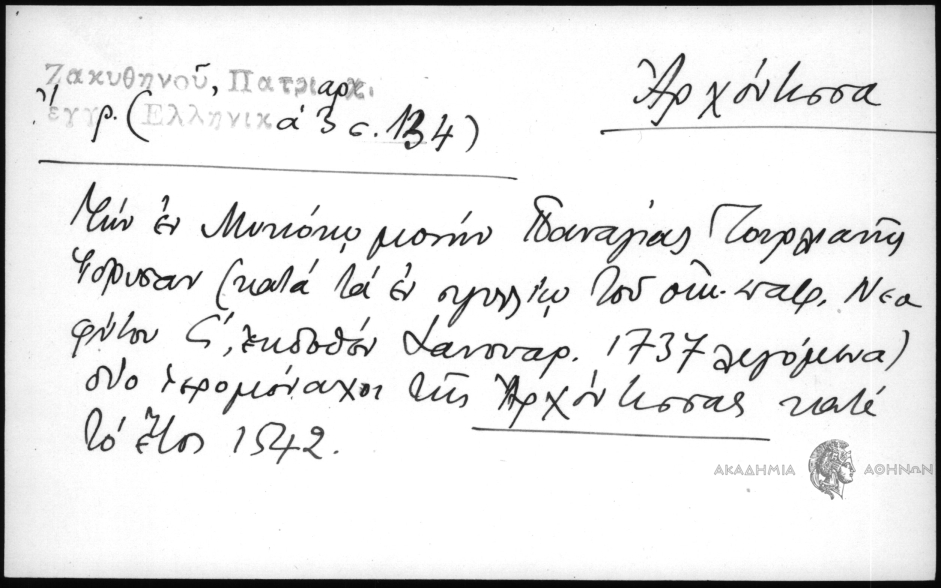 Ζακυθηνοῦ, Πατριαρχ.
ἔγγρ. (Ἑλληνικά 3 σ. 134)
Ἀρχόντισσα
Τὴν ἐν Μυκόνῳ μονὴν Παναγίας Τουρλιανῆς
ἵδρυσαν (κατὰ τὰ ἐν σιγιλλίῳ τοῦ οἰκ. πατρ. Νεο
φύτου Ϛ', ἐκδοθὲν Ἰανουαρ. 1737 λεγόμενα)
δύο ἱερομόναχοι τῆς Ἀρχόντισσας κατὰ
τὸ ἔτος 1542.
ΑΚΑΔΗΜΙΑ ΑΘΗΝΩΝ